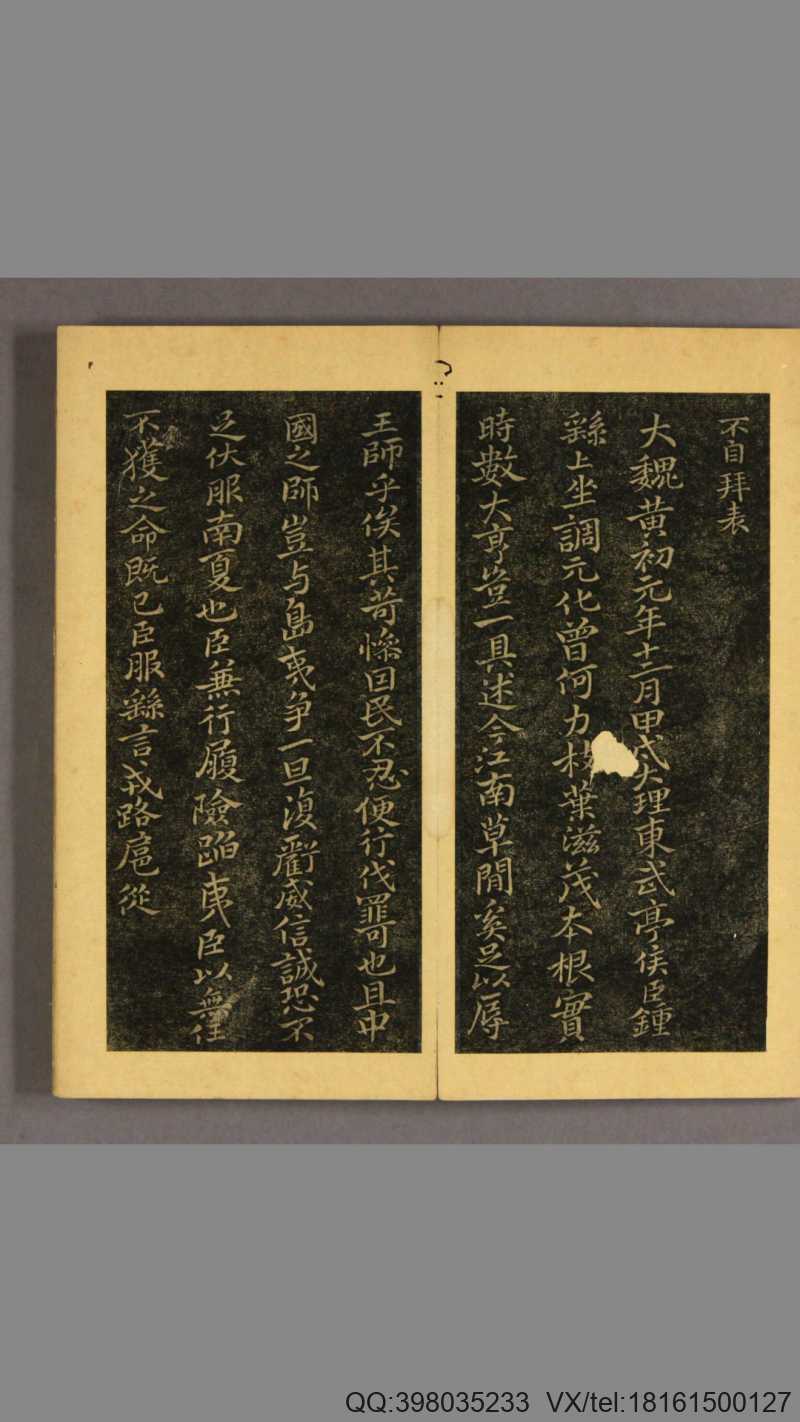 不自拜表
大魏黃初元年十二月甲戌大理東武亭侯臣鍾
繇上坐調元化曾何力枝葉滋茂本根實
時數大亨豈一具述今江南草間奚足以辱
王師乎俟其苛慘因民不忍便行伐罪可也且中
國之師豈与島夷爭一旦復虧威信誠恐不
足伏服南夏也臣蕪行履險蹈夷臣以無任
不獲之命既已臣服繇言戎路扈從
QQ:398035233 VX/tel:18161500127